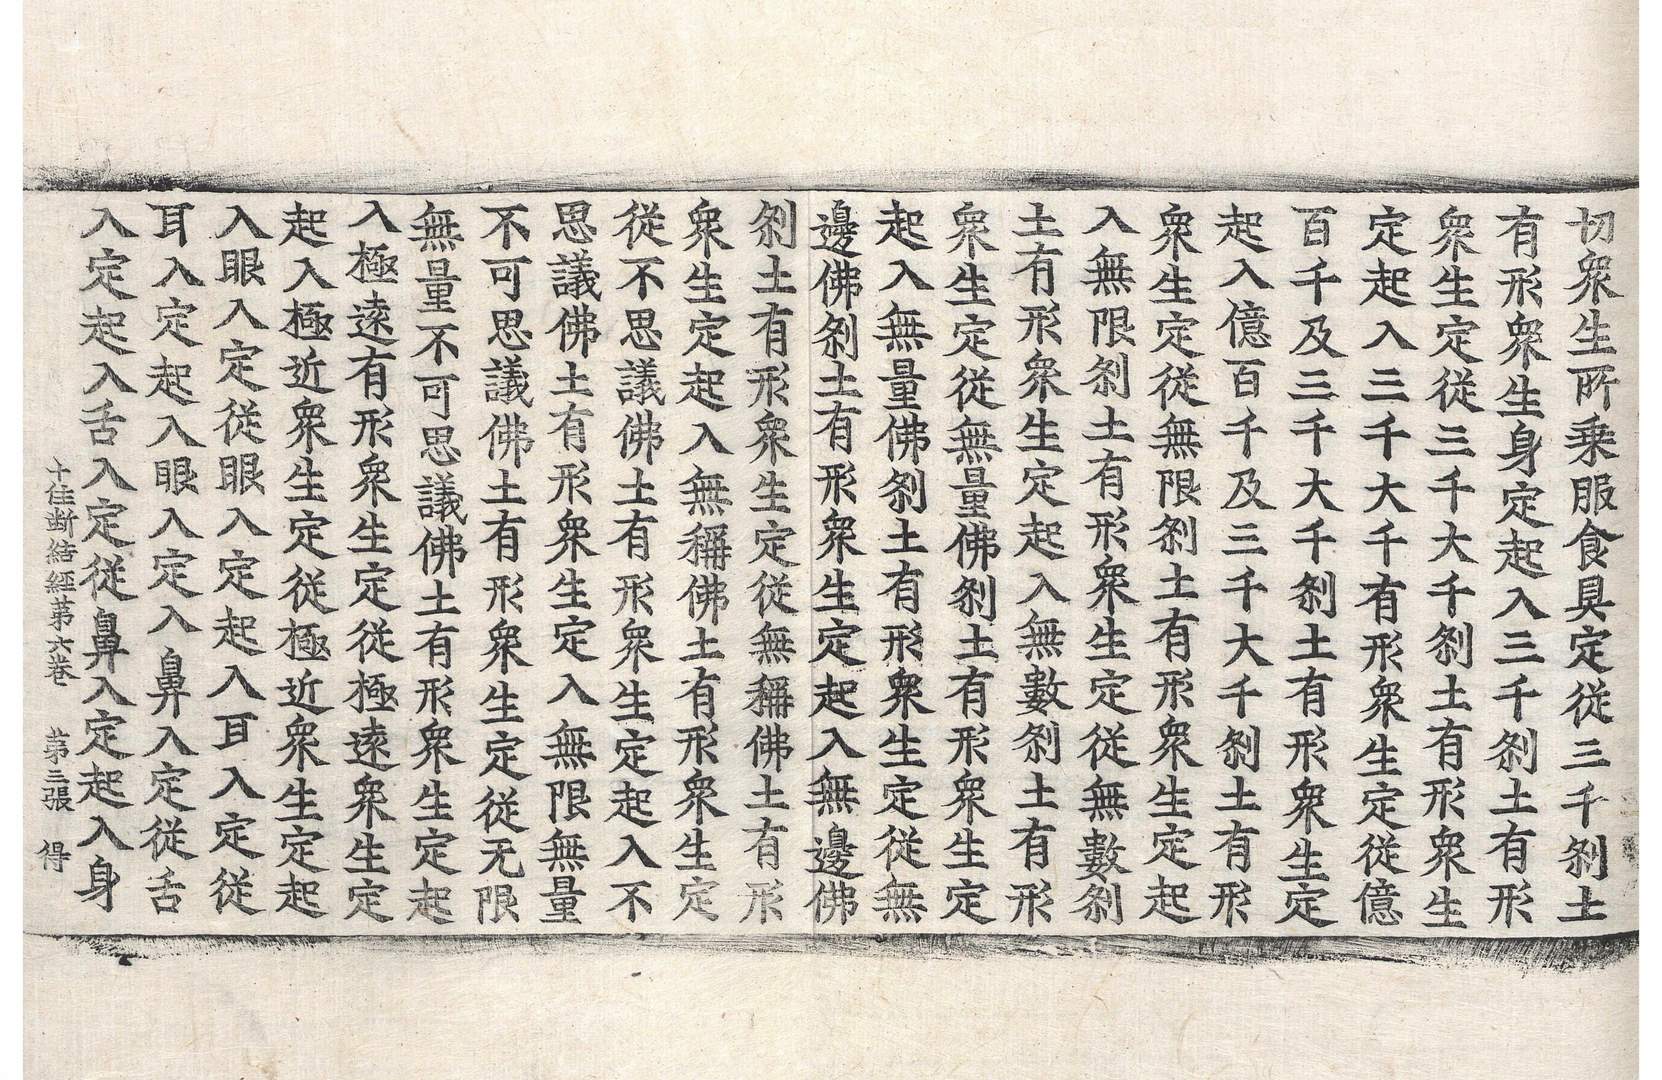 切衆生所乗服食具定從三千刹土
有形衆生身定起入三千刹土有形
衆生定從三千大千刹土有形衆生
定起入三千大千有形衆生定從億
百千及三千大千刹土有形衆生定
起入億百千及三千大千刹土有形
衆生定從無限刹土有形衆生定起
入無限刹土有形衆生定從無數刹
土有形衆生定起入無數刹土有形
衆生定從無量佛刹土有形衆生定
起入無量佛刹土有形衆生定從無
邊佛刹土有形衆生定起入無邊佛
刹土有形衆生定從無稱佛土有形
衆生定起入無稱佛土有形衆生定
從不思議佛土有形衆生定起入不
思議佛土有形衆生定入無限無量
不可思議佛土有形衆生定從无限
無量不可思議佛土有形衆生定起
入極遠有形衆生定從極遠衆生定
起入極近衆生定從極近衆生定起
入眼入定從眼入定起入耳入定從
耳入定起入眼入定入鼻入定從舌
入定起入舌入定從鼻入定起入身
十住断結經苐六巻 苐三張 得